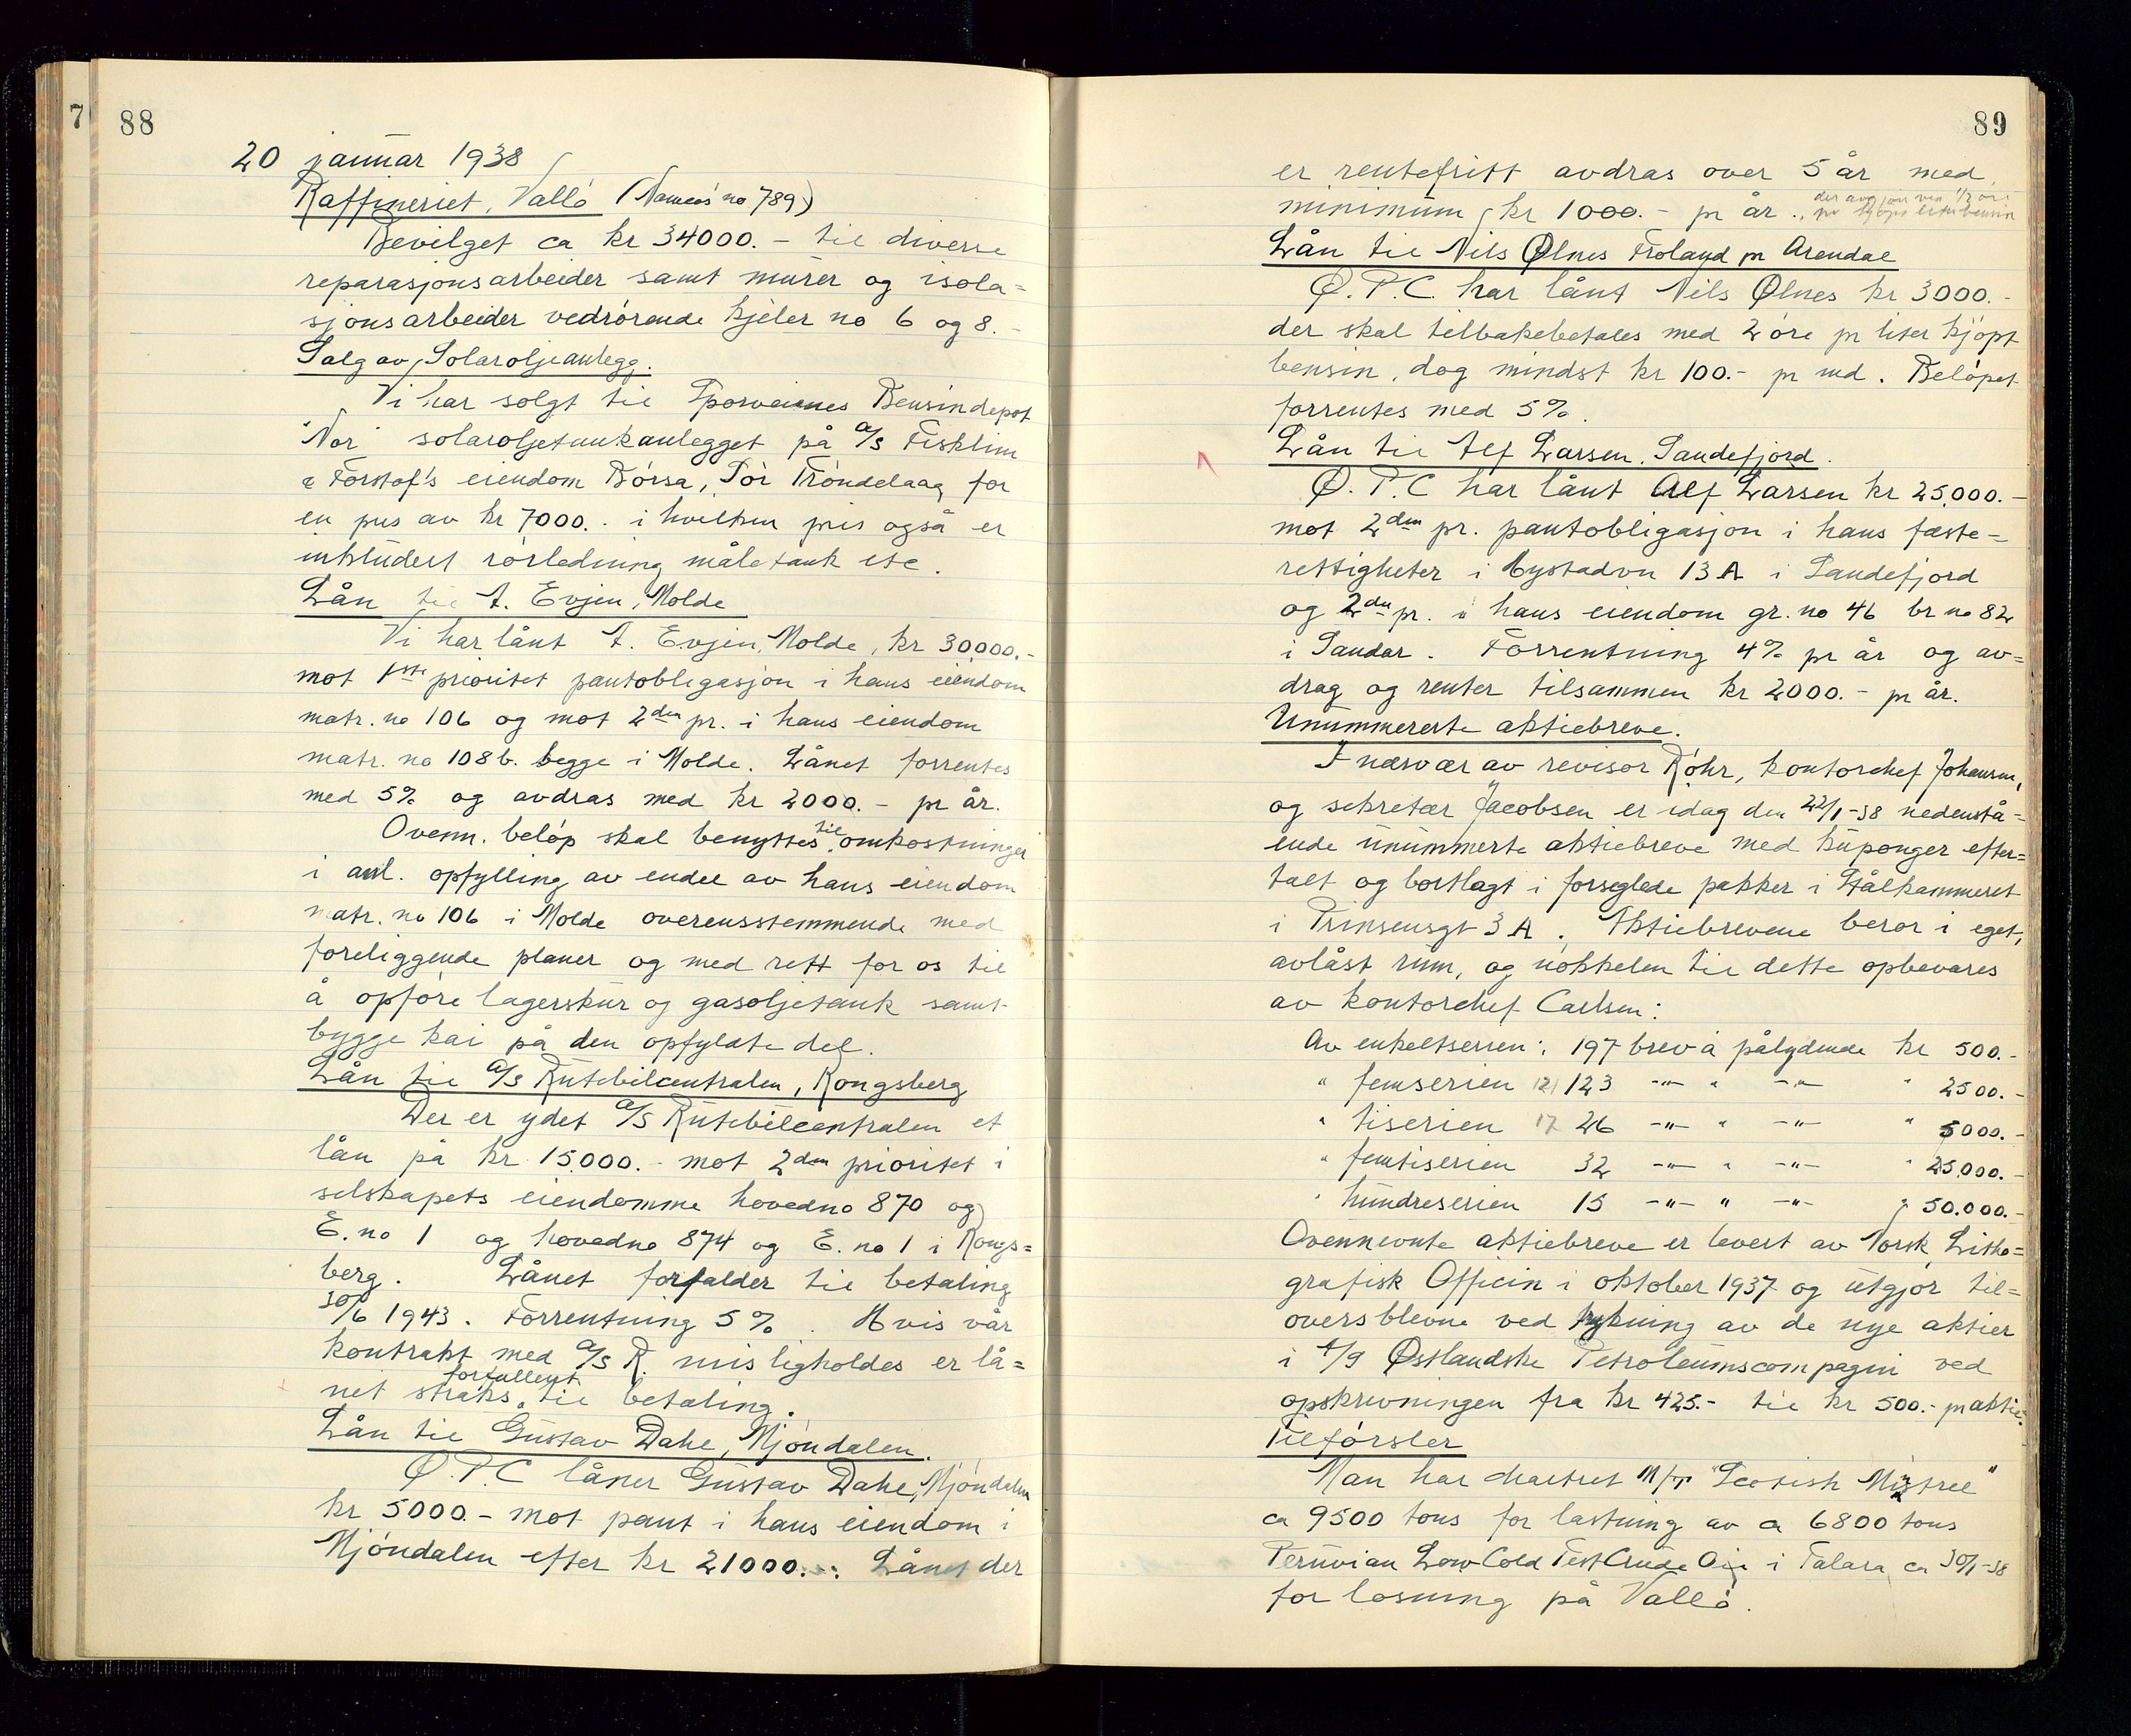 7
88
20 januar 1938
Raffineriet, Vallö ( no 789)
Bevilget ca kr 34000.- til diverse
reparasjonsarbeider samt murer og isola=
sjonsarbeider vedrörende kjeler no 6 og 8.-
Salg av Solaroljeanlegg.
Vi har solgt til Sporveienes Bensindepot
"Nor" solaroljetankanlegget på A/S Fisklim
& Forstof's eiendom Börsa, Sör Tröndelaag for
en pris av kr 7000.- i hvilken pris også er
inkludert rörledning måletank etc.
Lån til A. Evjen, Molde
Vi har lånt A. Evjen, Molde, kr 30,000.-
mot 1ste prioritet pantobligasjon i hans eiendom
matr. no 106 og mot 2den pr. i hans eiendom
matr. no 108 b. begge i Molde. Lånet forrentes
med 5% og avdras med kr 2000.- pr år.
Ovenn. belöp skal benyttes til omkostninger
i anl. opfylling av endel av hans eiendom
matr. no 106 i Molde overensstemmende med
foreliggende planer og med rett for os til
å opföre lagerskur og gasoljetank samt
bygge kai på den opfyldte del.
Lån til A/S Rutebilcentralen, Kongsberg
Der er ydet A/S Rutebilcentralen et
lån på kr 15.000.- mot 2den prioritet i
selskapets eiendomme hovedno 870 og
E. no 1 og hovedno 874 og E. no 1 i Kongs=
berg. Lånet forfalder til betaling
30/6 1943. Forrentning 5%. Hvis vår
kontrakt med A/S R. misligholdes er lå=
net straks forfallent til betaling.
Lån til Gustav Dahl, Mjöndalen.
Ø.P.C låner Gustav Dahl, Mjöndalen
kr 5000.- mot pant i hans eiendom i
Mjöndalen efter kr 21000.-. Lånet der
89
er rentefritt avdras over 5 år med
minimum kr 1000.- pr år.
Lån til Nils Ølnes Froland pr Arendal
Ø.P.C. har lånt Nils Ølnes kr 3000.-
der skal tilbakebetales med 2 öre pr liter kjöpt
bensin, dog mindst kr 100.- pr md. Belöpet
forrentes med 5%.
Lån til Alf Larsen, Sandefjord.
Ø.P.C har lånt Alf Larsen kr 25,000.-
mot 2den pr. pantobligasjon i hans fæste=
rettigheter i Bystadvn 13 A i Sandefjord
og 2den pr. i hans eiendom gr. no 46 br no 82
i Sandar. Forrentning 4% pr år og av=
drag og renter tilsammen kr 2000.- pr år.
Unummererte aktiebreve.
I nærvær av revisor Röhr, kontorchef Johansen,
og sekretær Jacobsen er idag den 22/1-38 nedenstå=
ende unummerte aktiebreve med kuponger efter=
talt og bortlagt i forseglede pakker i Stålkammeret
i Prinsensgt 3 A. Aktiebrevene beror i eget,
avlåst rum, og nökkelen til dette opbevares
av kontorchef Carlsen:
Av enkeltserien: 197 brev à pålydende kr 500.-
" femserien 121 123 -"- " -"- " 2500.-
" tiserien 17 26 -"- " -"- " 5000.-
" femtiserien 32 -"- " -"- " 25,000.-
" hundreserien 15 -"- " -"- " 50.000.-
Ovennevnte aktiebreve er levert av Norsk Litho=
grafisk Officin i oktober 1937 og utgjör til=
oversblevne ved trykning av de nye aktier
i A/S Østlandske Petroleumscompagni ved
opskrivningen fra kr 425.- til kr 500.- pr aktie.
Tilförsler
Man har chartret M/T "Scotish Mistrel"
ca 9500 tons for lastning av ca 6800 tons
Peruvian Low Cold Test Crude Oil i Talara ca 30/1-38
for losning på Vallö.